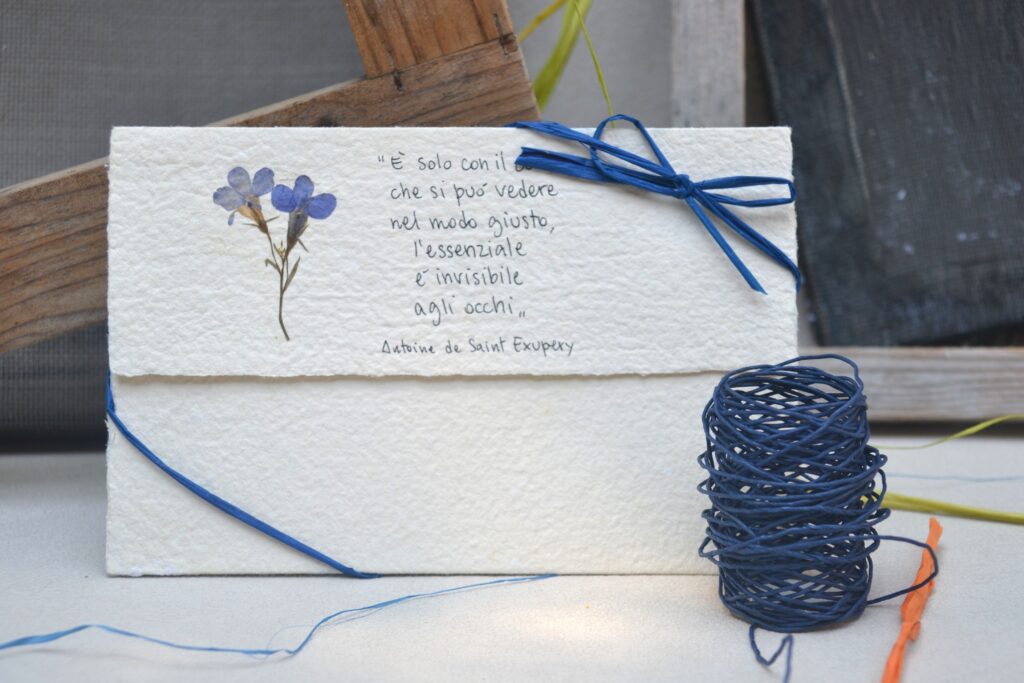 "È solo con il
che si puó vedere
nel modo giusto,
l'essenziale
é invisibile
agli occhi„
Antoine de Saint Exupery